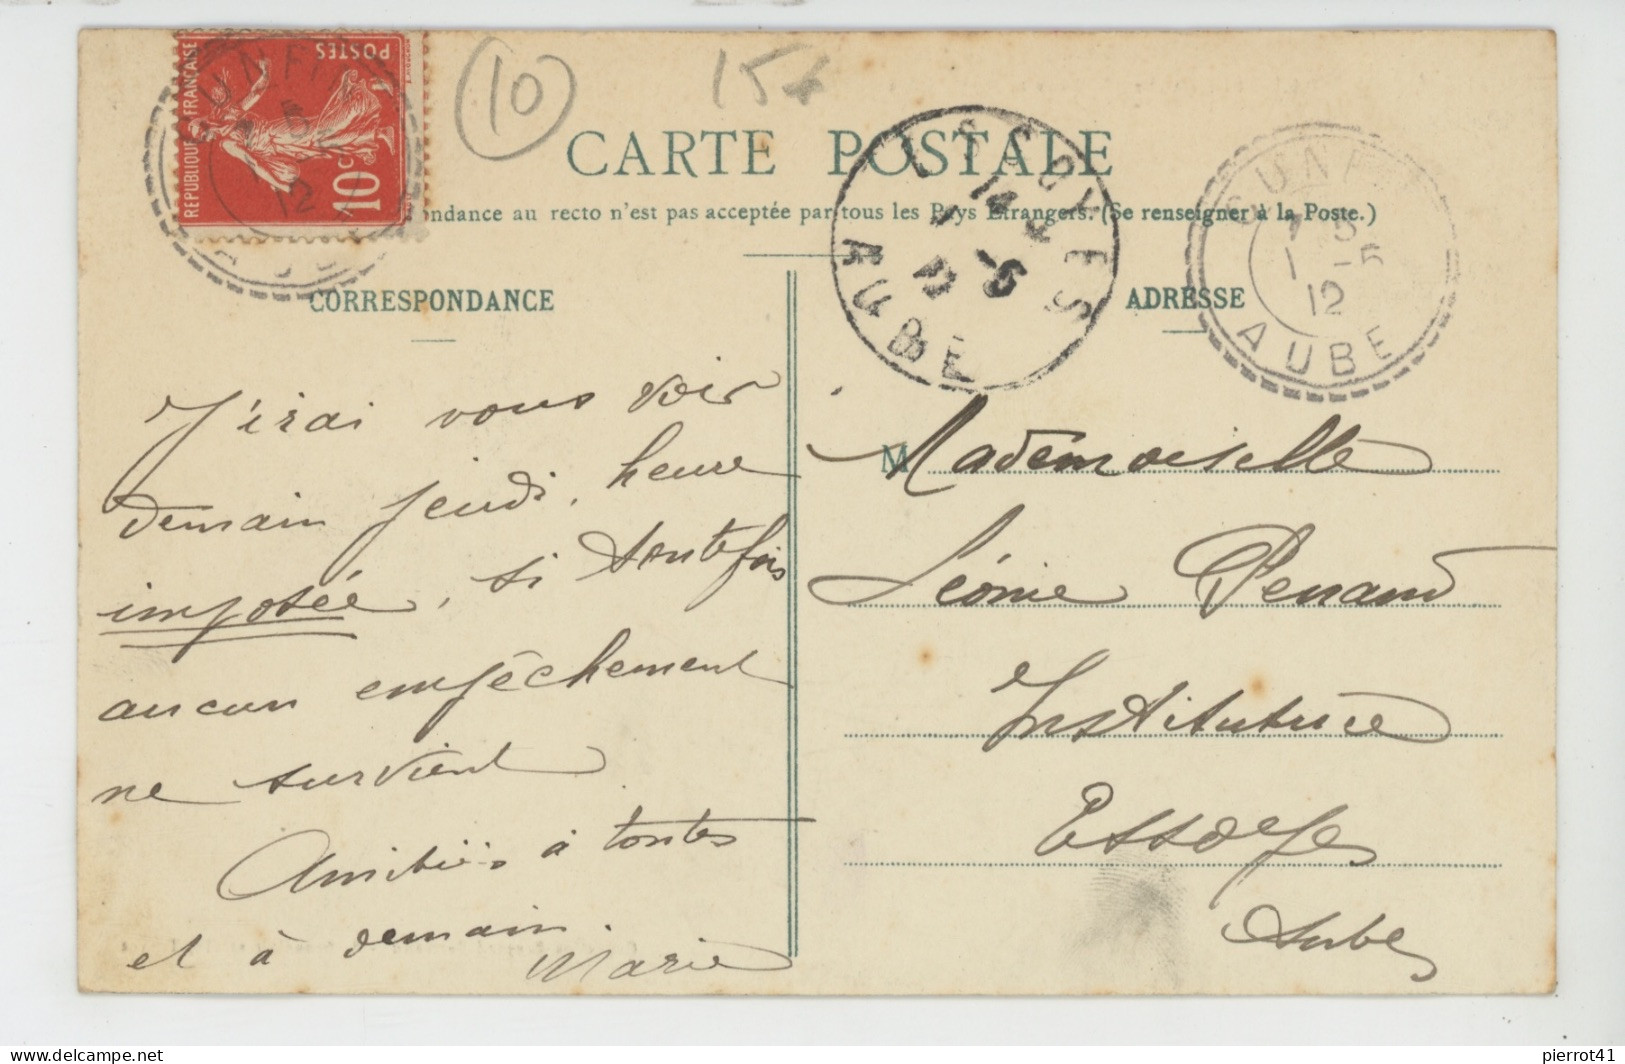 REPUBLIQUE FRANÇAISE
POSTES
10 c
10
15
CARTE POSTALE
ondance au recto n'est pas acceptée par tous les Pays Etrangers. (Se renseigner à la Poste.)
CUNFI
1-5
12
AUBE
ESSOYES
AUBE
CORRESPONDANCE
J'irai vous voir
demain jeudi, heure
imposée, si toutefois
aucun empêchement
ne survient
Amitiés à toutes
et à demain.
Marie
ADRESSE
M
Mademoiselle
Léonie
Institutrice
Essoyes
Aube
www.delcampe.net
pierrot41